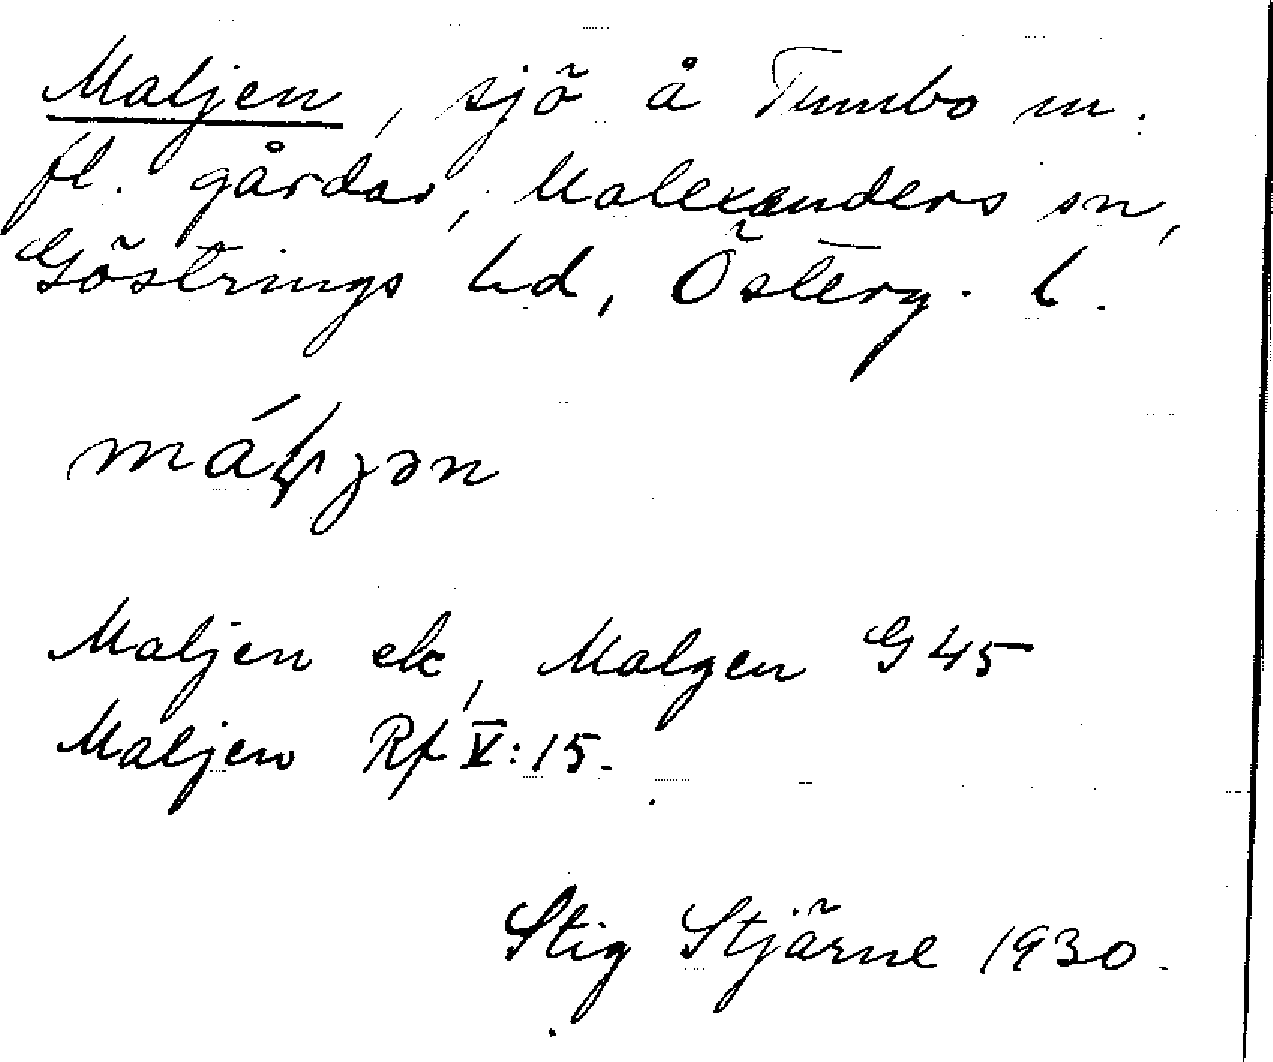 Maljen, sjö å Tumbo m.
fl. gårdar, Malexanders sn,
Göstrings hd, Österg. l.
Maljen ek, Malgen G 45
Maljen Rf V:15.
Stig Stjärne 1930.